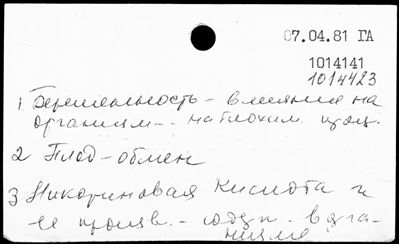 07.04.81 ГА
1014141
1014423
1 Беременность - влияние на
организм - на биохим. проц.
2 Плод - обмен
3 Никотиновая кислота и
ее произв. - содерж. в орга-
низме